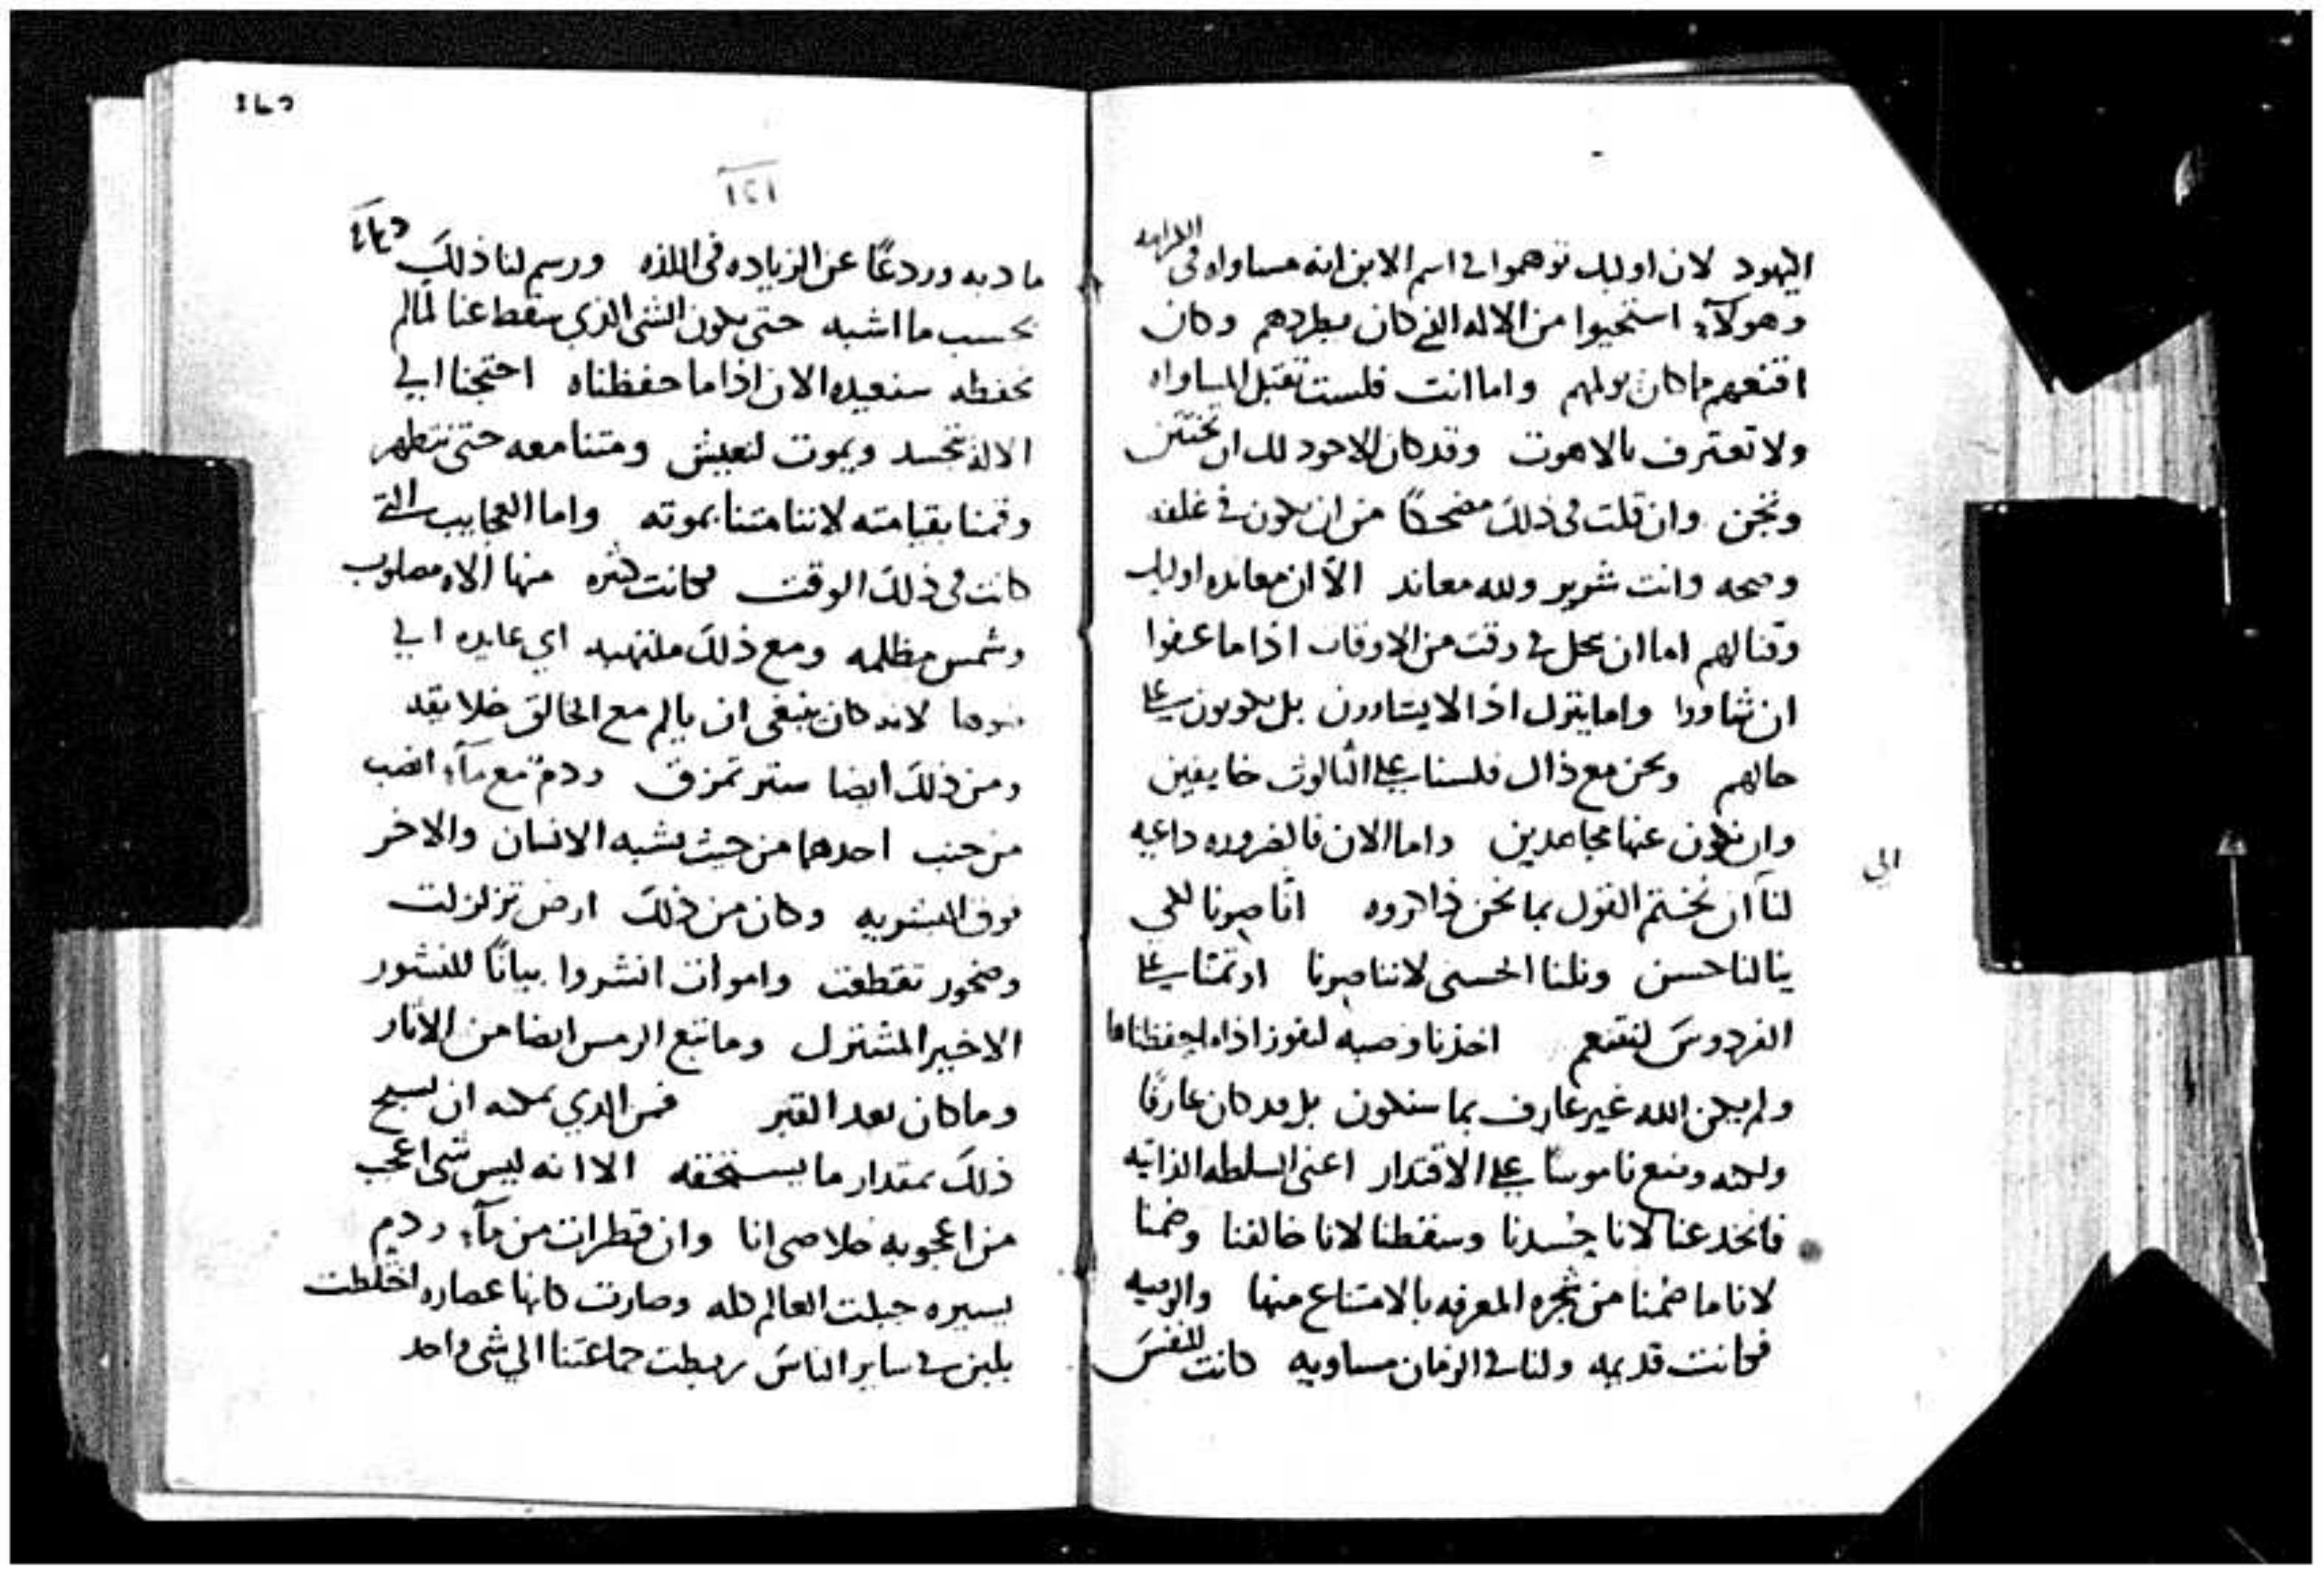 اليهود لان اوليك توهموا في اسم الابن انه مساواه في الكرامه
وهولآء استحيوا من الاله الذي كان يطردهم وكان
اقنعهم ما كان يولمهم واما انت فلست تقبل المساواه
ولا تعترف بالاهوت وقد كان الاجود لك ان تختتن
وتجن وان قلت في ذلك مضحكًا من ان يكون في غلفه
وصحه وانت شرير ولله معاند الا ان معانده اوليك
وقتالهم اما ان يحل في وقت من الاوقات اذا ما
ان واما يتزل اذا لا بل يكونون علي
حالهم ونحن مع ذاك فلسنا علي الثالوث خايفين
وان نكون عنها مجاهدين واما الان فالضروره داعيه
الي
لنا ان نختم القول بما نحن ذاكروه انا صيرنا لكي
ينالنا حسن ونلنا الحسنى لاننا صيرنا اوتمنا علي
الفردوس لنتنعم اخذنا وصيه لنفوز اذا ما حفظناها
ولم يكن الله غير عارف بما سنكون بل قد كان عارفًا
ولكنه وضع ناموسًا علي الاقتدار اعني السلطه الذاتيه
فانخدعنا لانا حُسدنا وسقطنا لانا خالفنا وصمنا
لانا ما صمنا من شجره المعرفه بالامتناع منها والوصيه
فكانت قديمه ولنا في الزمان مساويه كانت للنفس
٤٦٥
١٢١
ما دبه وردعًا عن الزياده في اللذه ورسم لنا ذلك
بحسب ما اشبه حتى يكون الشي الذي سقط عنا لما لم
نحفظه سنعيده الان اذا ما حفظناه احتجنا الي
الاله تجسد ويموت لنعيش ومتنا معه حتى نتطهر
وقمنا بقيامته لاننا متنا بموته واما العجايب التي
كانت في ذلك الوقت فكانت كثيره منها الاه مصلوب
وشمس مظلمه ومع ذلك ملتهبه اي عايده الي
ضوها لانه كان ينبغي ان يالم مع الخالق خلايقه
ومن ذلك ايضا ستر تمزق ودم مع مآء انصب
من جنب احدهما من حيث يشبه الانسان والاخر
فوق البشريه وكان من ذلك ارض تزلزلت
وصخور تقطعت واموات انتشروا بيانًا للنشور
الاخير المشترك وما تبع الرمس ايضا من الاثار
وما كان بعد القبر فمن الذي يمكنه ان يسبح
ذلك بمقدار ما يستحقه الا انه ليس شي اعجب
من اعجوبه خلاصي انا وان قطرات من مآء ودم
يسيره جبلت العالم كله وصارت كانها عصاره اختلطت
بلبن في ساير الناس ربطت جماعتنا الي شي واحد